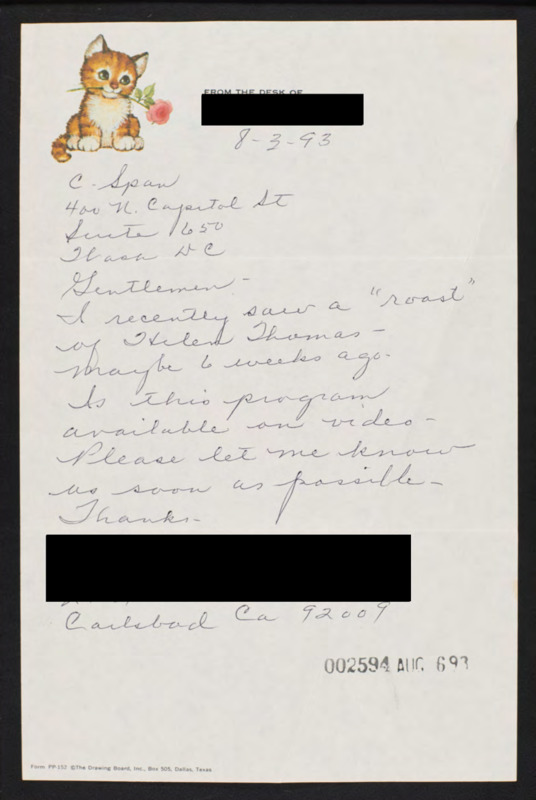 FROM THE DESK OF
8-3-93
C. Span
400 N. Capitol St
Suite 650
Wash DC
Gentlemen-
I recently saw a "roast"
of Helen Thomas-
maybe 6 weeks ago.
Is this program
available on video-
Please let me know
as soon as possible-
Thanks-
Carlsbad Ca 92009
002594 AUG. 6 93
Form PP-152 ©The Drawing Board, Inc., Box 505, Dallas, Texas